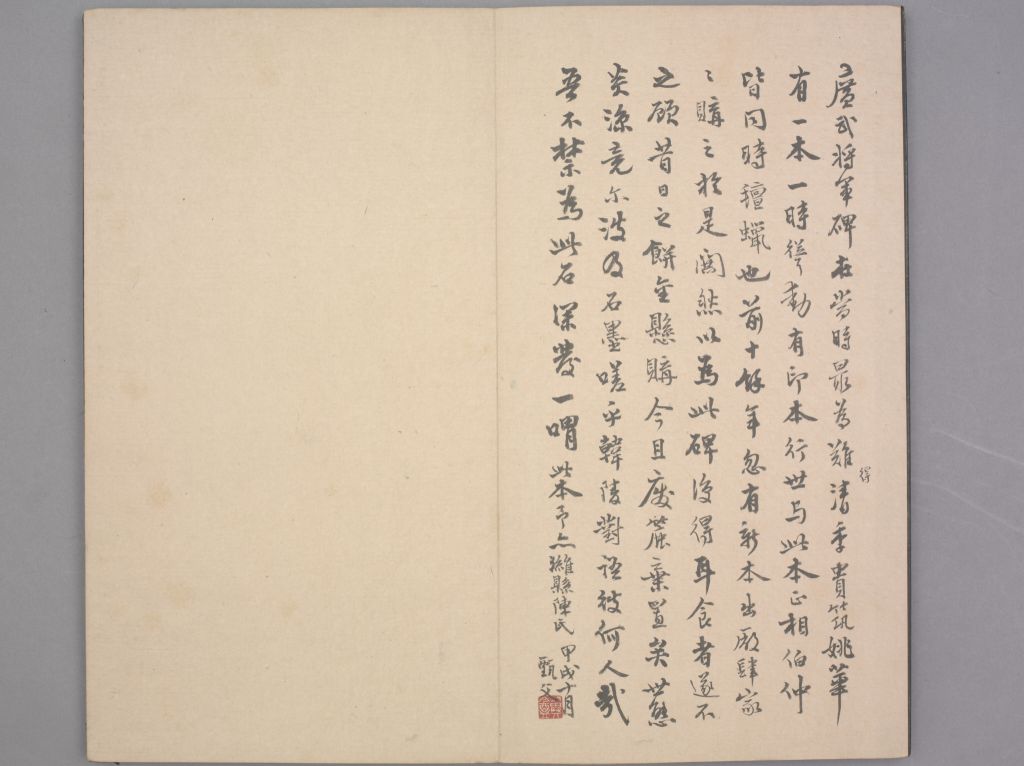 廣武將軍碑在當時最為難得清季貴筑姚華
有一本一時聳動有印本行世与此本正相伯仲
皆同時氊蠟也前十餘年忽有新本出廠肆家
〻購之於是闃然以為此碑復得耳食者遂不
之顧昔日之餅金懸購今且廢簏棄置矣世態
炎涼竟尔波及石墨嗟乎韓陵對語彼何人哉
吾不禁為此石深發一喟此本予亦濰縣陳氏
甲戌十月
甄父